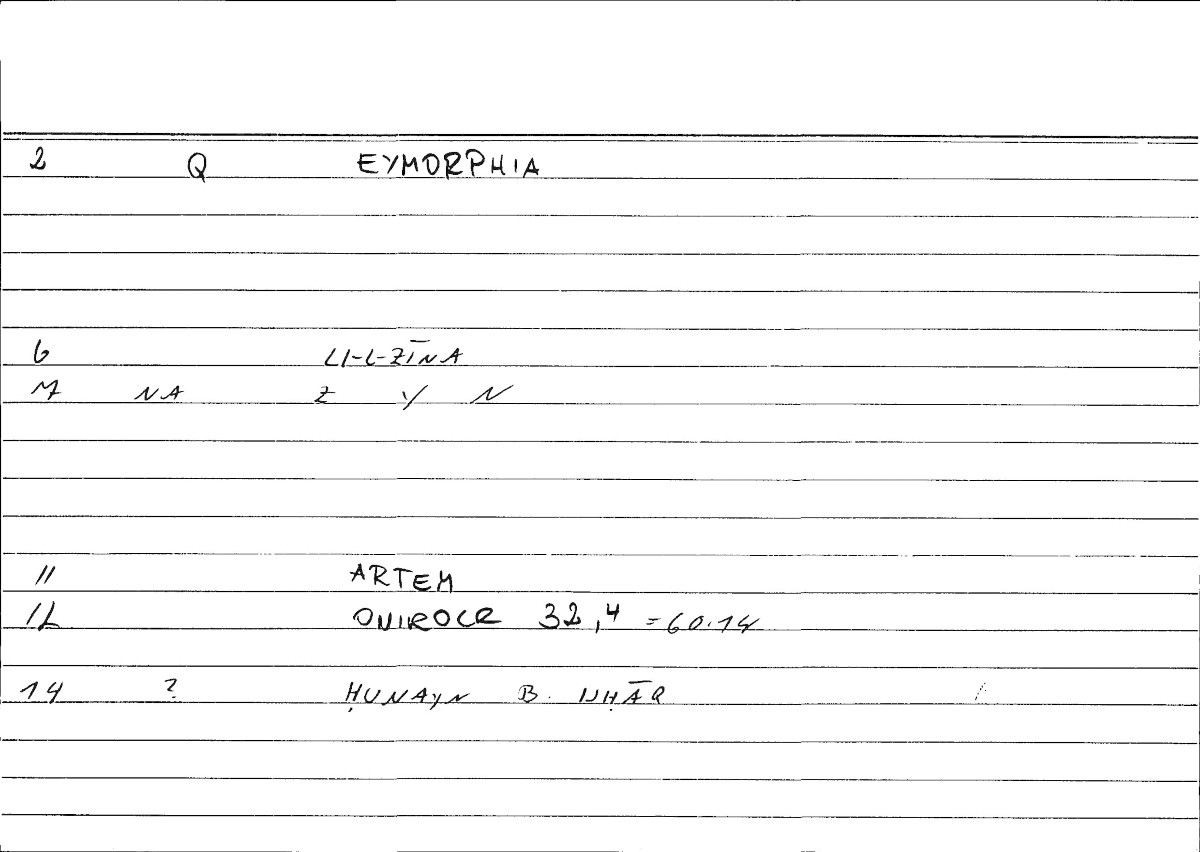 2 Q EYMORPHIA
6 LI-L-ZĪNA
7 NA Z Y N
11 ARTEM
12 ONIROCR 32,4 =60.14
14 ? ḤUNAYN B. ISḤĀQ